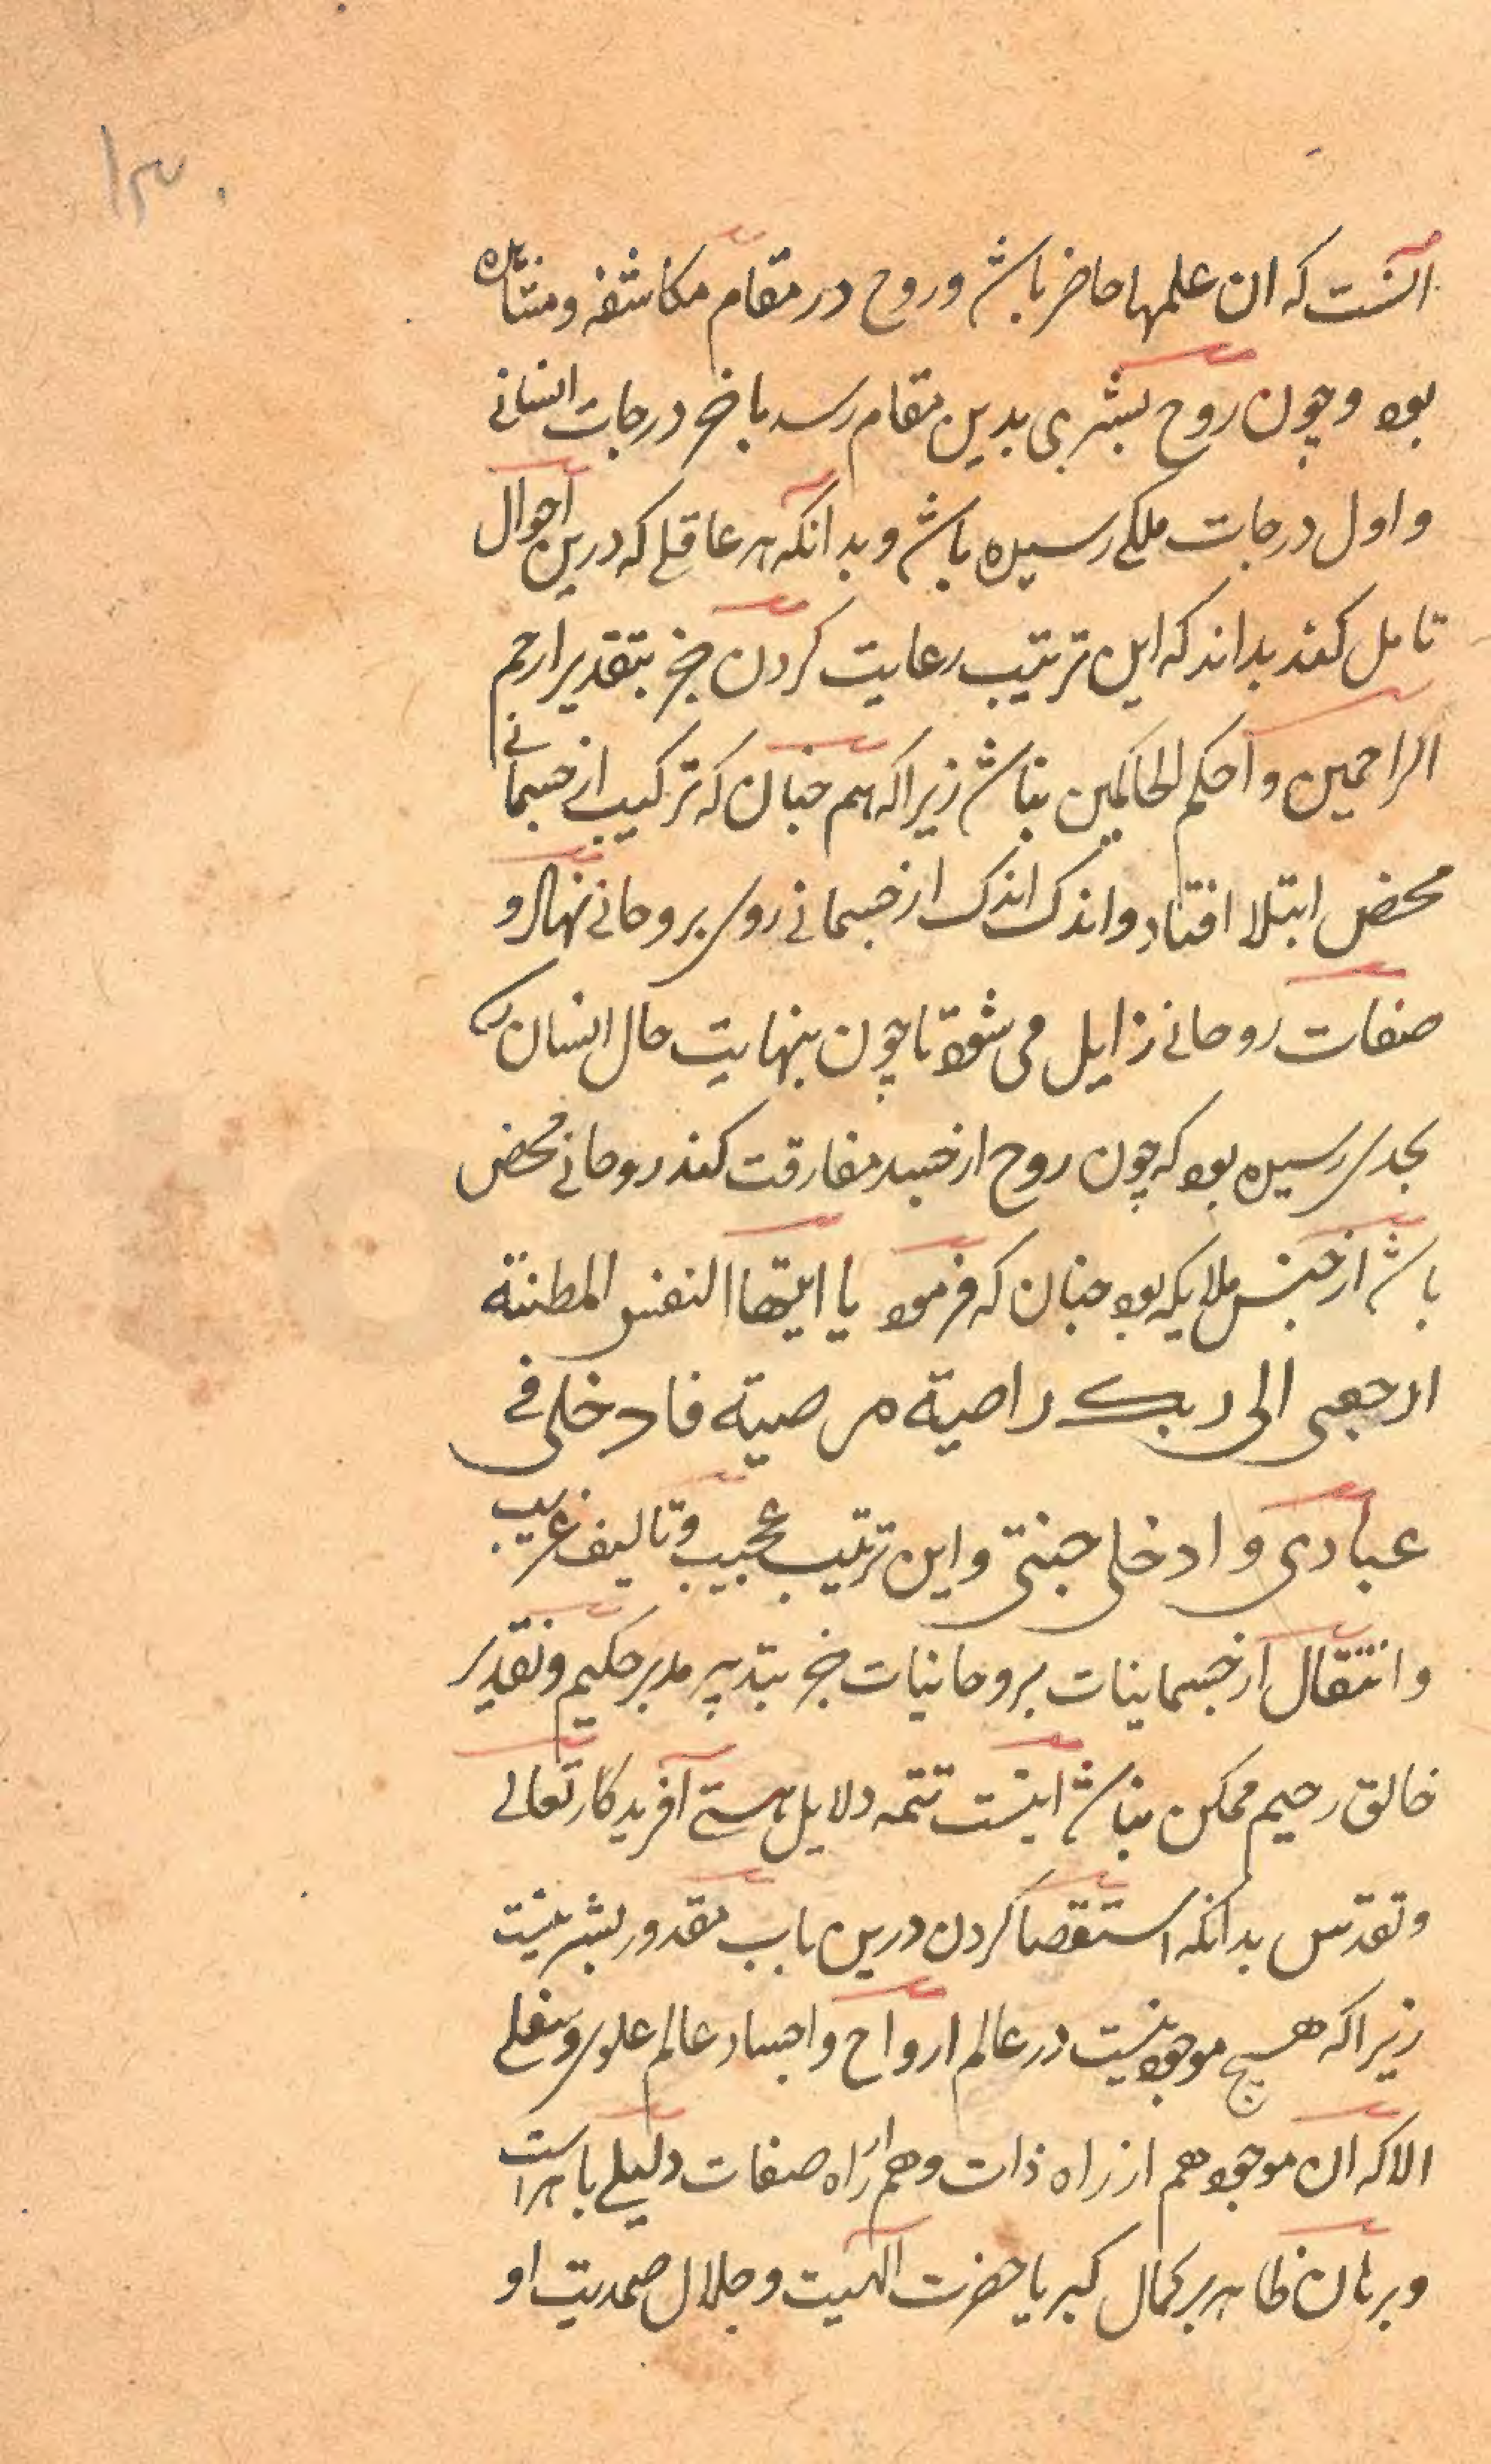 ۱۳۰
آنست که ان علمها حاضر باشد وروح در مقام مکاشفه ومشاهده
بود وچون روح بشری بدین مقام رسد باخر درجات انسانی
واول درجات ملکی رسیده باشد وبدانکه هر عاقلی که درین احوال
تامل کند بداند که این ترتیب رعایت کردن جز بتقدیر ارحم
الراحمین واحکم الحاکمین نباشد زیراکه هم چنان که ترکیب از جسمانی
محض ابتلا افتاد واندک اندک از جسمانی روی بروحانی نهاد و
صفات روحانی زایل می شود تا چون بنهایت حال انسان
بحدی رسیده بود که چون روح از جسد مفارقت کند روحانی محض
باشد از جنس ملایکه بود چنان که فرمود یا ایتها النفس المطئنة
ارجعی الی ربک راضیة مرضیة فادخلی فی
عبادی وادخلی جنتی واین ترتیب عجیب وتالیف غریب
وانتقال از جسمانیات بروحانیات جز بتدبیر مدبر حکیم وتقدیر
خالق رحیم ممکن نباشد اینست تتمه دلایل هستی آفریدکار تعالی
وتقدس بدانکه استقصا کردن درین باب مقدور بشر نیست
زیراکه هیچ موجود نیست در عالم ارواح واجساد عالم علوی وسفلی
الا که ان موجود هم از راه ذات وهم از راه صفات دلیلی باهر است
وبرهان ظاهر بر کمال کبریا حضرت الهیت وجلال صمدیت او